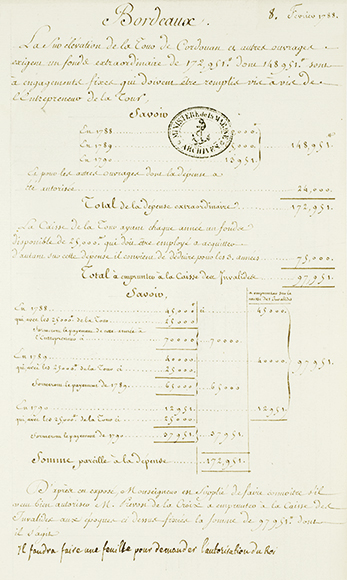 Bordeaux. 8. Fevrier 1788.
La Surélévation de la Tour de Cordouan et autres ouvrages
exigent un fonds extraordinaire de 172,951.# dont 148,951.# sont
à engagements fixes qui doivent être remplis vis à vis de
l'Entrepreneur de la Tour,
Savoir
En 1788
En 1789 148,951.
En 1790 13951
MINISTERE DE LA MARINE
ARCHIVES
Et pour les autres ouvrages dont la depense a
été autorisée 24,000.
Total de la depense extraordinaire 172,951.
La Caisse de la Tour ayant chaque année un fonds
disponible de 25,000.# qui doit être employé à acquitter
d'autant sur cette depense il convient de déduire pour les 3. années 75,000
Total à emprunter à la Caisse des Invalides 97,951.
Savoir,
à emprunter de la caisse des Invalides
En 1788 45000 45000
qui avec les 25000.# de la Tour 25000
formeront le payement de cette année à
l'Entrepreneur 70000 70000
En 1789 40000 40000 97951
qui, avec les 25000.# de la Tour à 25000
formeront le payement de 1789 65000 65000
En 1790 12951 12951
qui avec les 25000.# de la Tour à 25000
formeront le payement de 1790 37951 37951
Somme pareille à la depense 172951
D'après cet exposé, Monseigneur est Supplié de faire connoitre s'il
veut bien autoriser M. Prévost de la Croix à emprunter à la Caisse des
Invalides aux époques ci dessus fixées la somme de 97951.# dont
il s'agit.
Il faudra faire une feuille pour demander l'autorisation du Roi